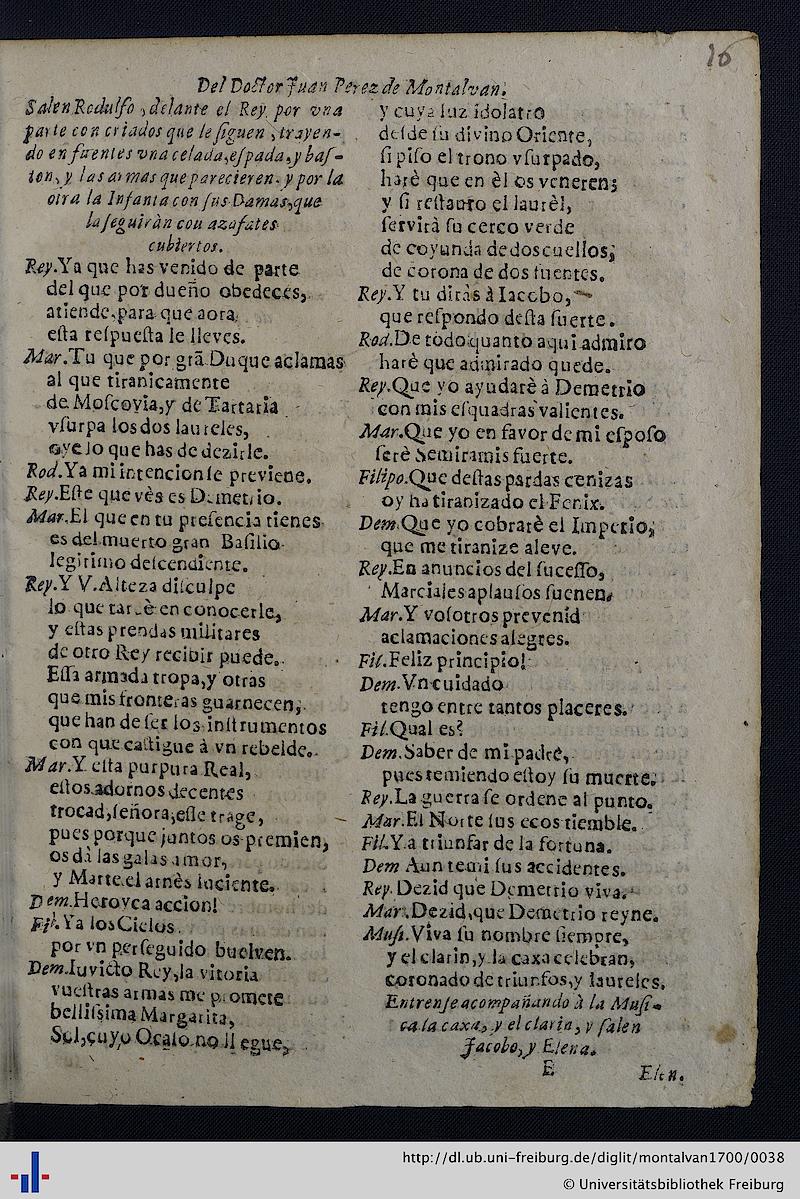 16
Del Doctor Juan Perez de Montalvan.
Salen Rodulfo, delante el Rey, por vna
parte con criados que le siguen, trayen-
do en fuentes vna celada, espada, y bas-
ton, y las armas que parecieren, y por la
otra la Infanta con sus Damas, que
la seguiràn con azafates
cubiertos.
Rey. Ya que has venido de parte
del que por dueño obedeces,
atiende, para que aora
esta respuesta le lleves.
Mar. Tu que por grã Duque aclamas
al que tiranicamente
de Moscovia, y de Tartaria
vsurpa los dos laureles,
oye lo que has de dezirle.
Rod. Ya mi intencion se previene.
Rey. Este que vès es Demetrio.
Mar. El que en tu presencia tienes
es del muerto gran Basilio
legitimo descendiente.
Rey. Y V. Alteza disculpe
lo que tardè en conocerle,
y estas prendas militares
de otro Rey recibir puede.
Essa armada tropa, y otras
que mis fronteras guarnecen,
que han de ser los instrumentos
con que castigue à vn rebelde.
Mar. Y esta purpura Real,
estos adornos decentes
trocad, señora, esse trage,
pues porque juntos os premien,
os dà las galas amor,
y Marte el arnès luciente.
Dem. Heroyca accion!
Fil. Ya los Cielos
por vn perseguido buelven.
Dem. Iuvicto Rey, la vitoria
vuestras armas me promete
bellissima Margarita,
Sol, cuyo Ocaso no llegue,
y cuya luz idolatro
desde su divino Oriente,
si piso el trono vsurpado,
harè que en èl os veneren;
y si restauro el laurèl,
servirà su cerco verde
de coyunda de dos cuellos,
de corona de dos fuentes.
Rey. Y tu diràs à Iacobo,
que respondo desta suerte.
Rod. De todo quanto aqui admiro
harè que admirado quede.
Rey. Que yo ayudarè à Demetrio
con mis esquadras valientes.
Mar. Que yo en favor de mi esposo
serè Semiramis fuerte.
Filipo. Que destas pardas cenizas
oy ha tiranizado el Fenix.
Dem. Que yo cobrarè el Imperio,
que me tiranize aleve.
Rey. En anuncios del sucesso,
Marciales aplausos suenen.
Mar. Y vosotros prevenid
aclamaciones alegres.
Fil. Feliz principio!
Dem. Vn cuidado
tengo entre tantos placeres.
Fil. Qual es?
Dem. Saber de mi padre,
pues temiendo estoy su muerte.
Rey. La guerra se ordene al punto.
Mar. El Norte sus ecos tiemble.
Fil. Y a triunfar de la fortuna.
Dem Aun temi sus accidentes.
Rey. Dezid que Demetrio viva.
Mar. Dezid, que Demetrio reyne.
Musi. Viva su nombre siempre,
y el clarin, y la caxa celebran,
coronado de triunfos, y laureles.
Entrense acompañando à la Musi-
ca la caxa, y el clarin, y salen
Jacobo, y Elena.
E
Elen.
http://dl.ub.uni-freiburg.de/diglit/montalvan1700/0038
© Universitätsbibliothek Freiburg